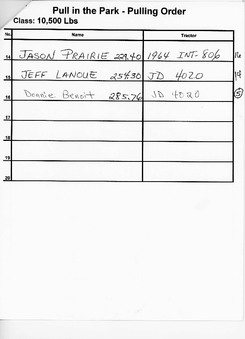 Pull in the Park - Pulling Order
Class: 10,500 Lbs
No. Name Tractor
14 JASON PRAIRIE 229.40 1964 INT-806
15 JEFF LANOUE 254.30 JD 4020
16 Dennie Benoit 285.76 JD 4020 5
17
18
19
20